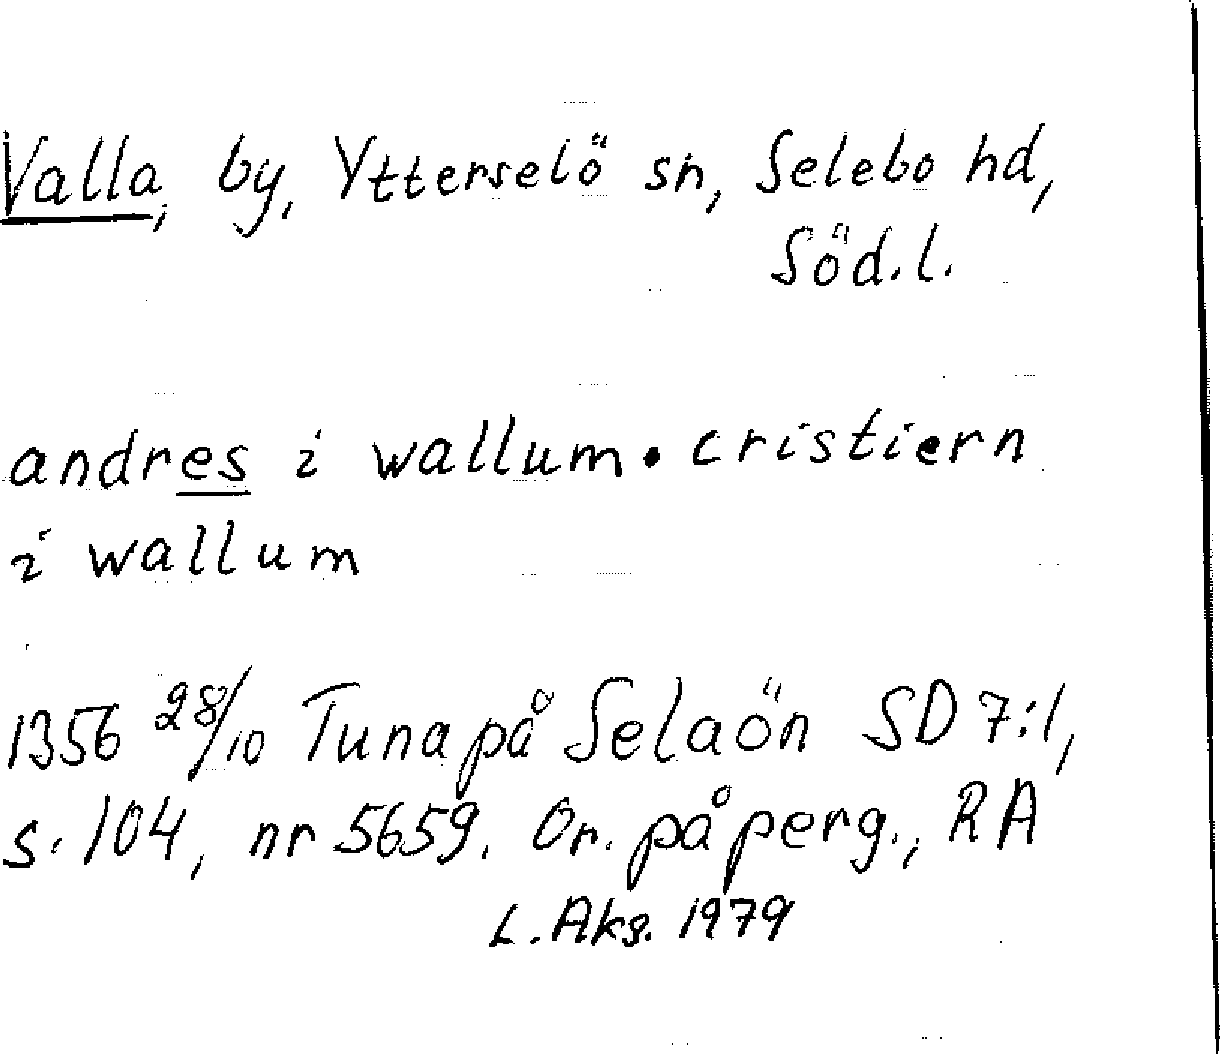 Valla, by, Ytterselö sn, Selebo hd,
Söd.l.
andres i wallum • cristiern
i wallum
1356 28/10 Tuna på Selaön SD 7:1,
s. 104, nr 5659. Or. på perg., RA
L. Aks. 1979